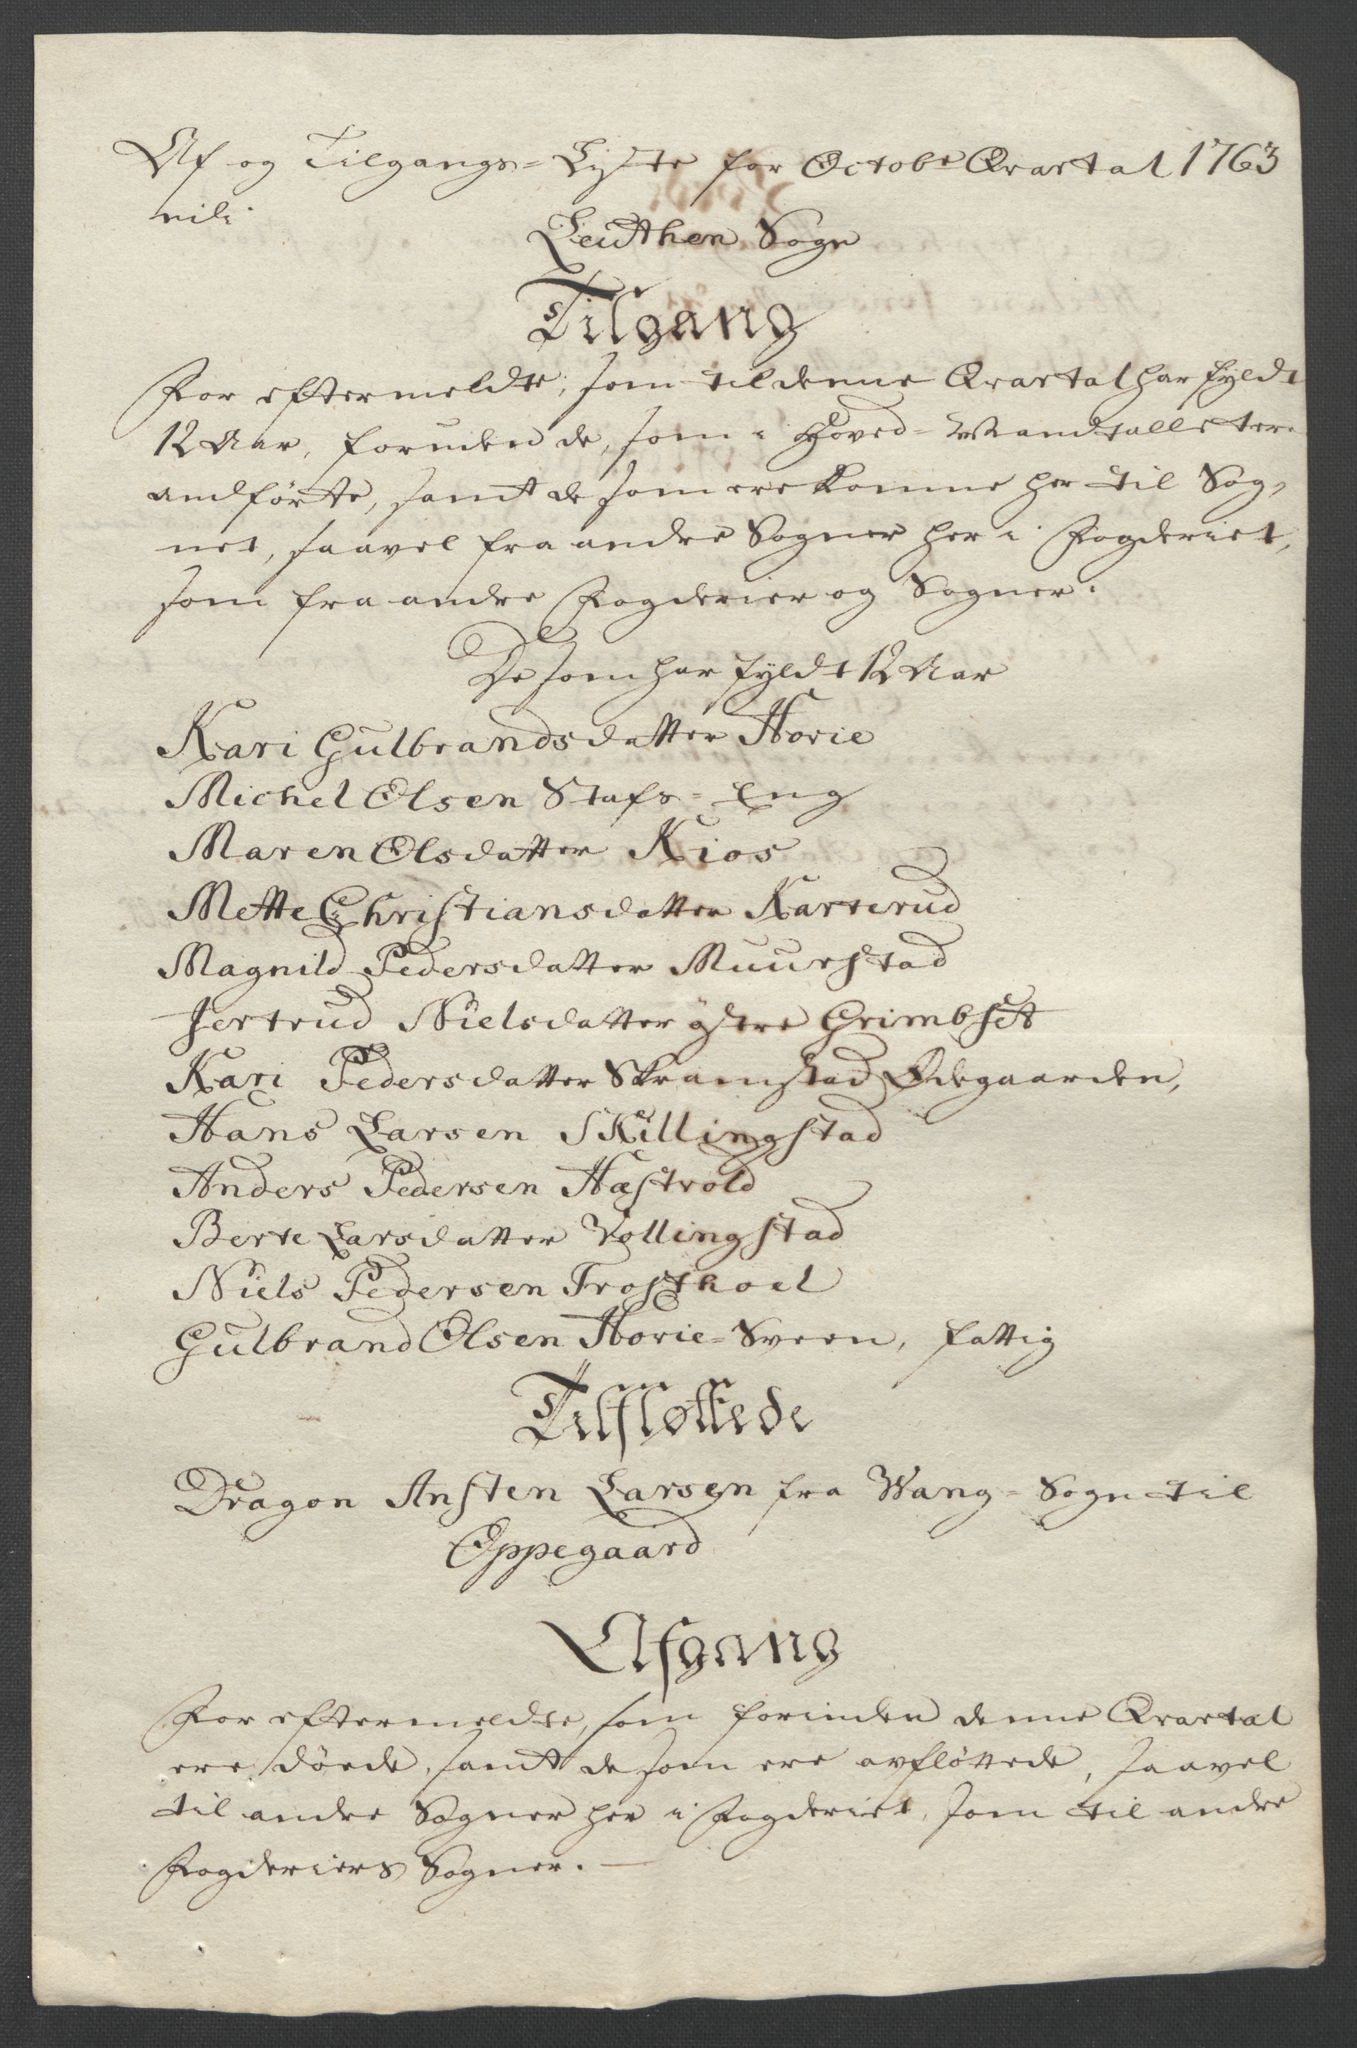 Af og Tilgangs-Lyste for Octobr Qvartal 1763
Leuthen Sogn
Tilgang
For eftermeldte, som til denne Qvartal har fyldt
12 Aar, foruden de, som i Hoved-Mandtallet ere
andförte, samt de som ere komne her til Sog-
net, saavel fra andre Sogner her i Fogderiet,
som fra andre Fogderier og Sogner.
De som har fyldt 12 Aar
Kari Gulbrandsdatter Horie
Michel Olsen Stafs-Eng
Maren Olsdatter Kios
Mette Christiansdatter Karterud
Magnild Pedersdatter Muurstad
Jertrud Nielsdatter östre Grimbset
Kari Pedersdatter Skramstad Ödegaarden,
Hans Larsen Skillingstad
Anders Pedersen Hæstvold
Berte Larsdatter Vollingstad
Niels Pedersen Trosthoel
Gulbrand Olsen Horie-Sveen, fattig
Tilfløttede
Dragon Ansten Larsen fra Wang-Sogn til
Oppegaard
Afgang
For eftermeldte, som forinden denne Qvartal
ere döede, samt de som ere avflöttede, saavel
til andre Sogner her i Fogderiet, som til andre
Fogderiers Sogner.